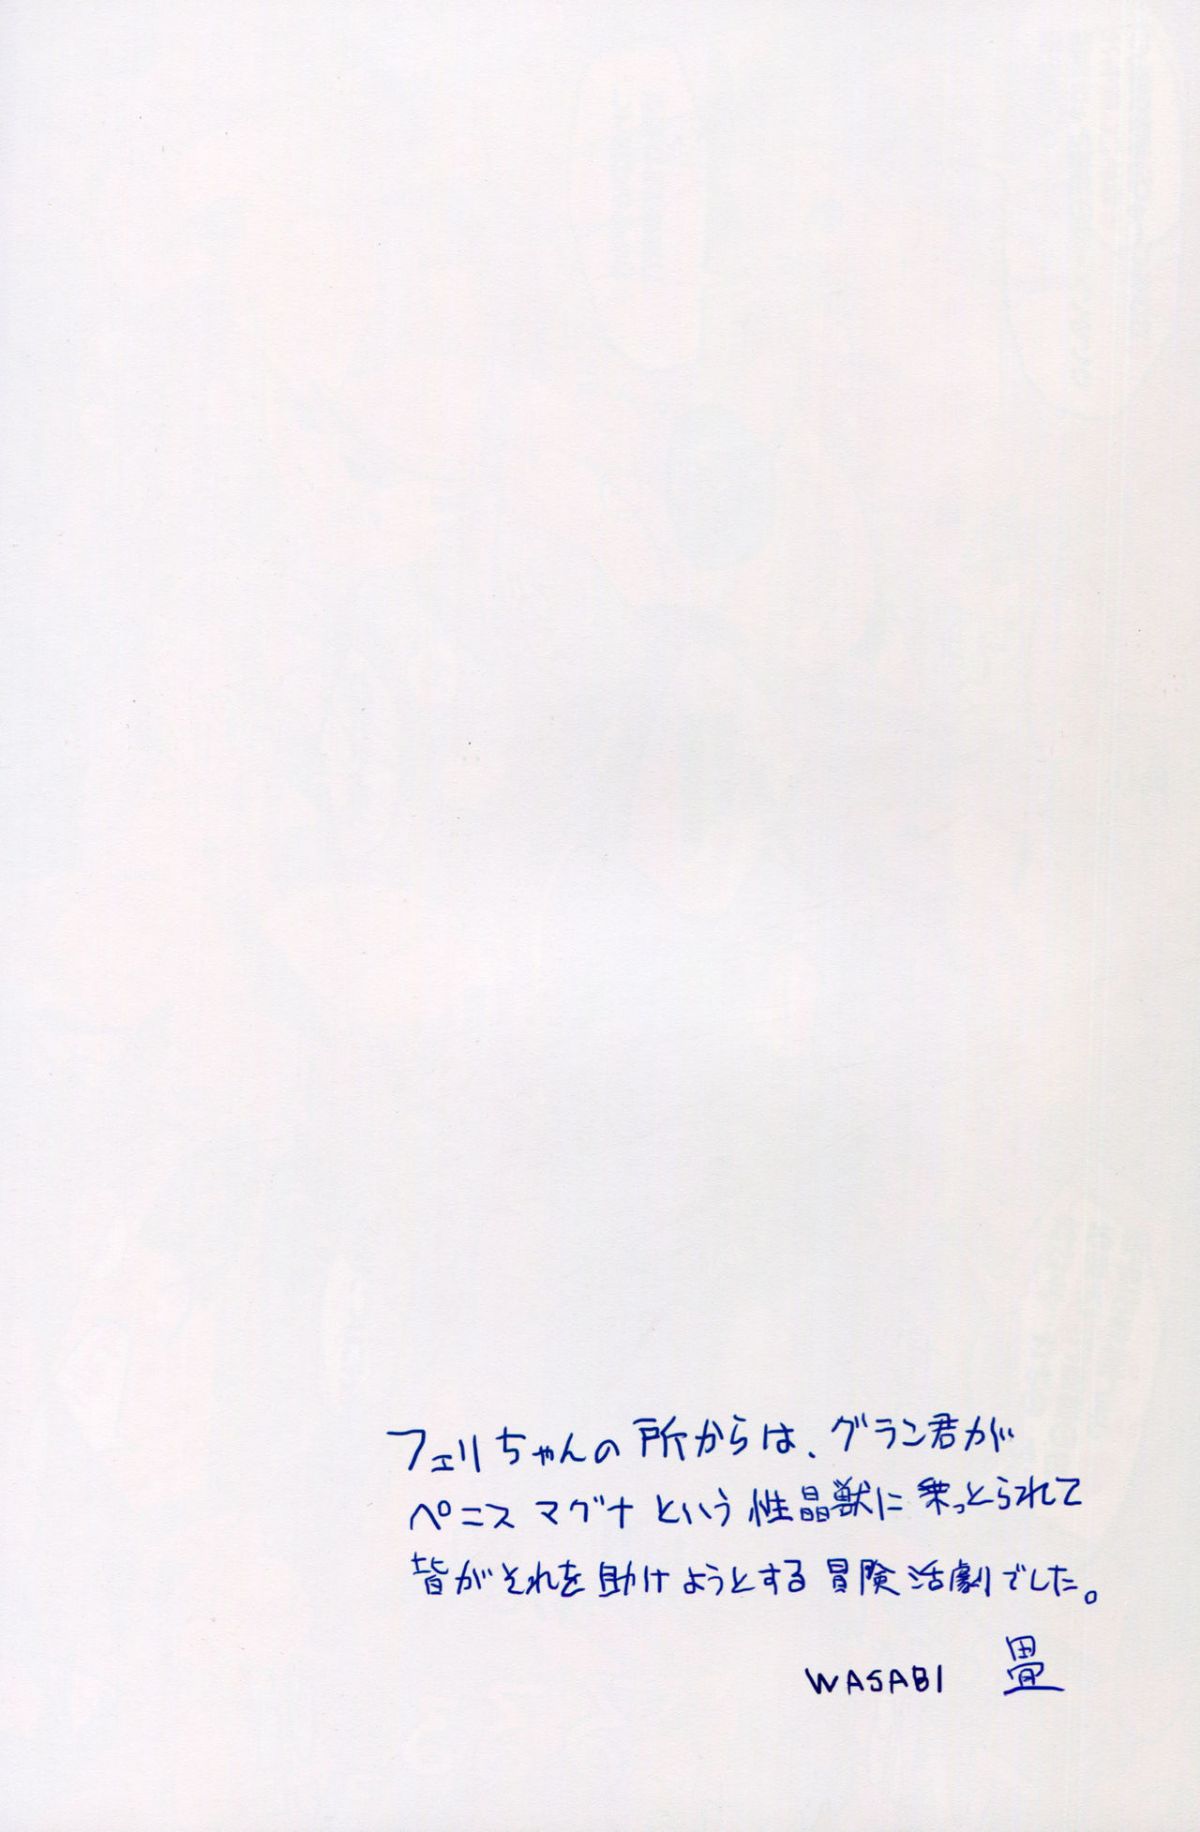 フェリちゃんの所からは、グラン君が
ペニスマグナという性晶獣に乗っとられて
皆がそれを助けようとする冒険活劇でした。
WASABI 畳